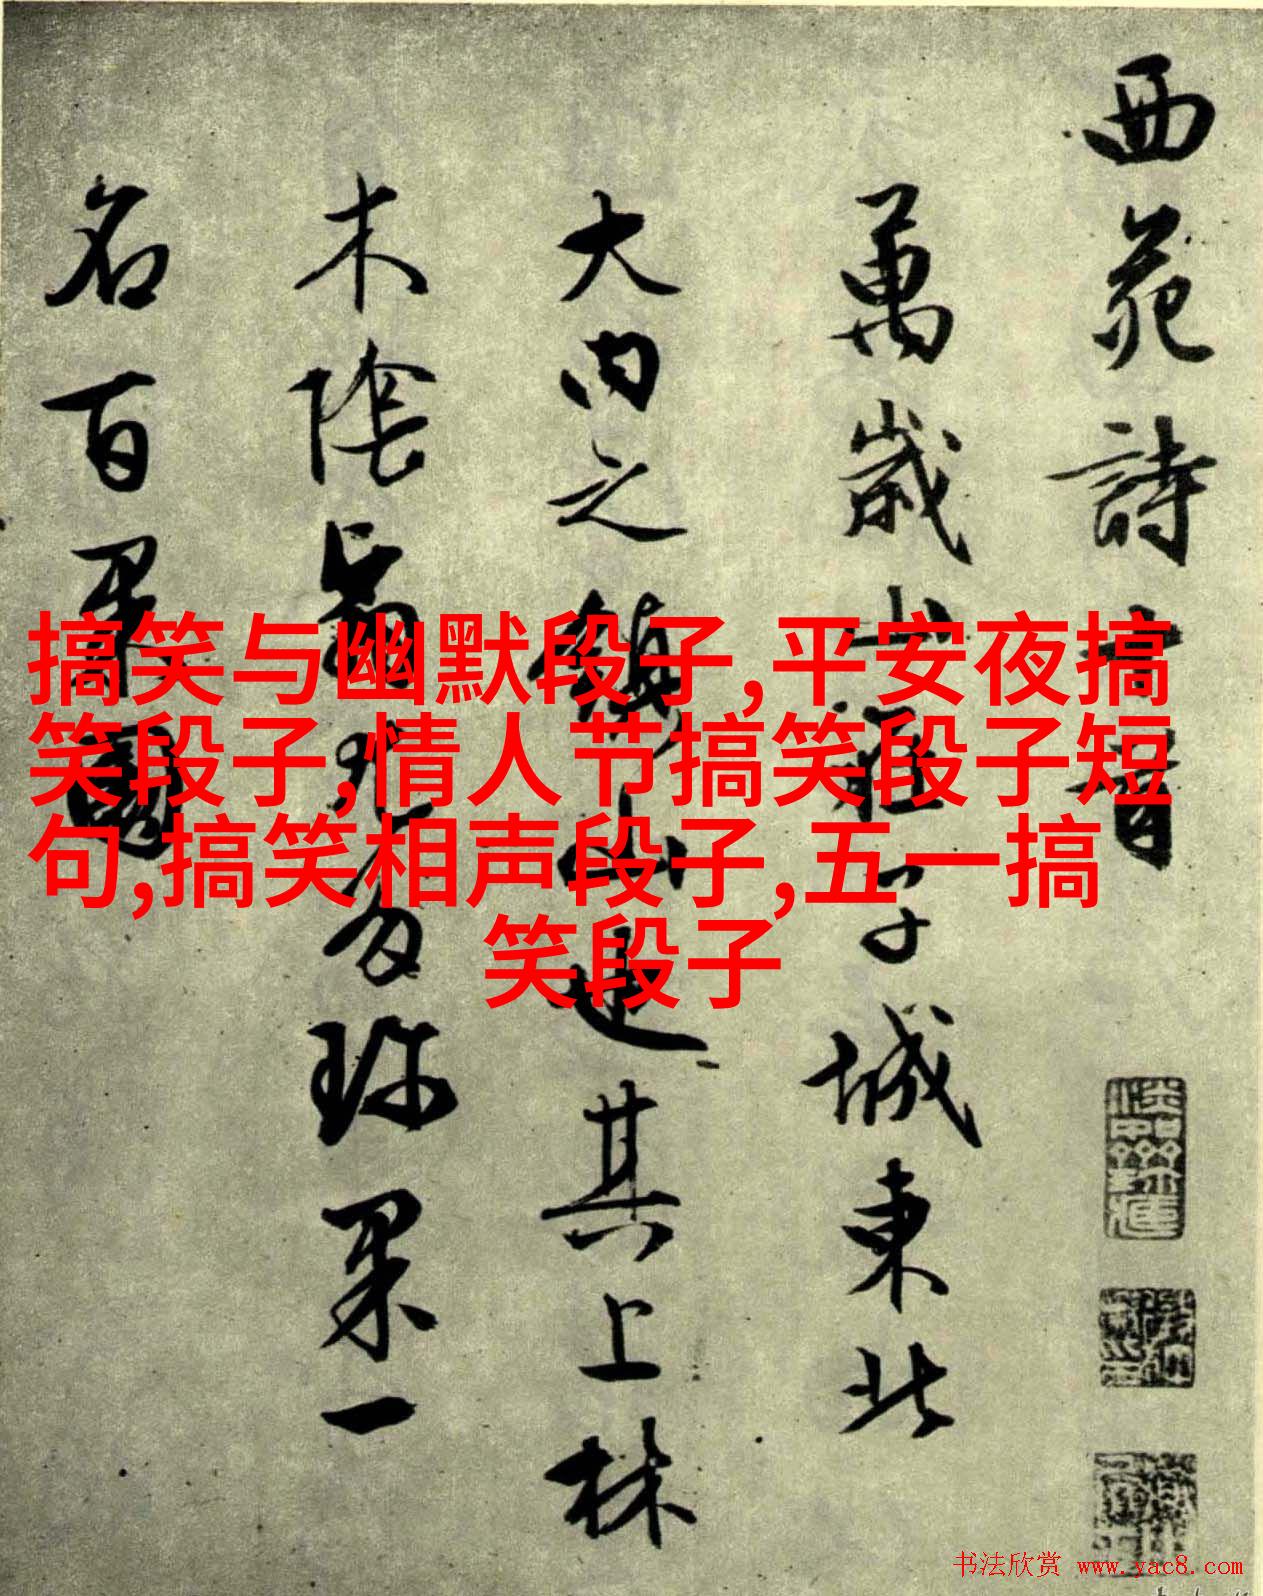 搞笑与幽默段子,平安夜搞
笑段子,情人节搞笑段子短
句,搞笑相声段子,五一搞
笑段子
西苑詩十首
萬歲山在子城東北
大内之鎮山其上林
木陰翳尤多珍果一
名百果園
书法欣赏 www.yac8.com